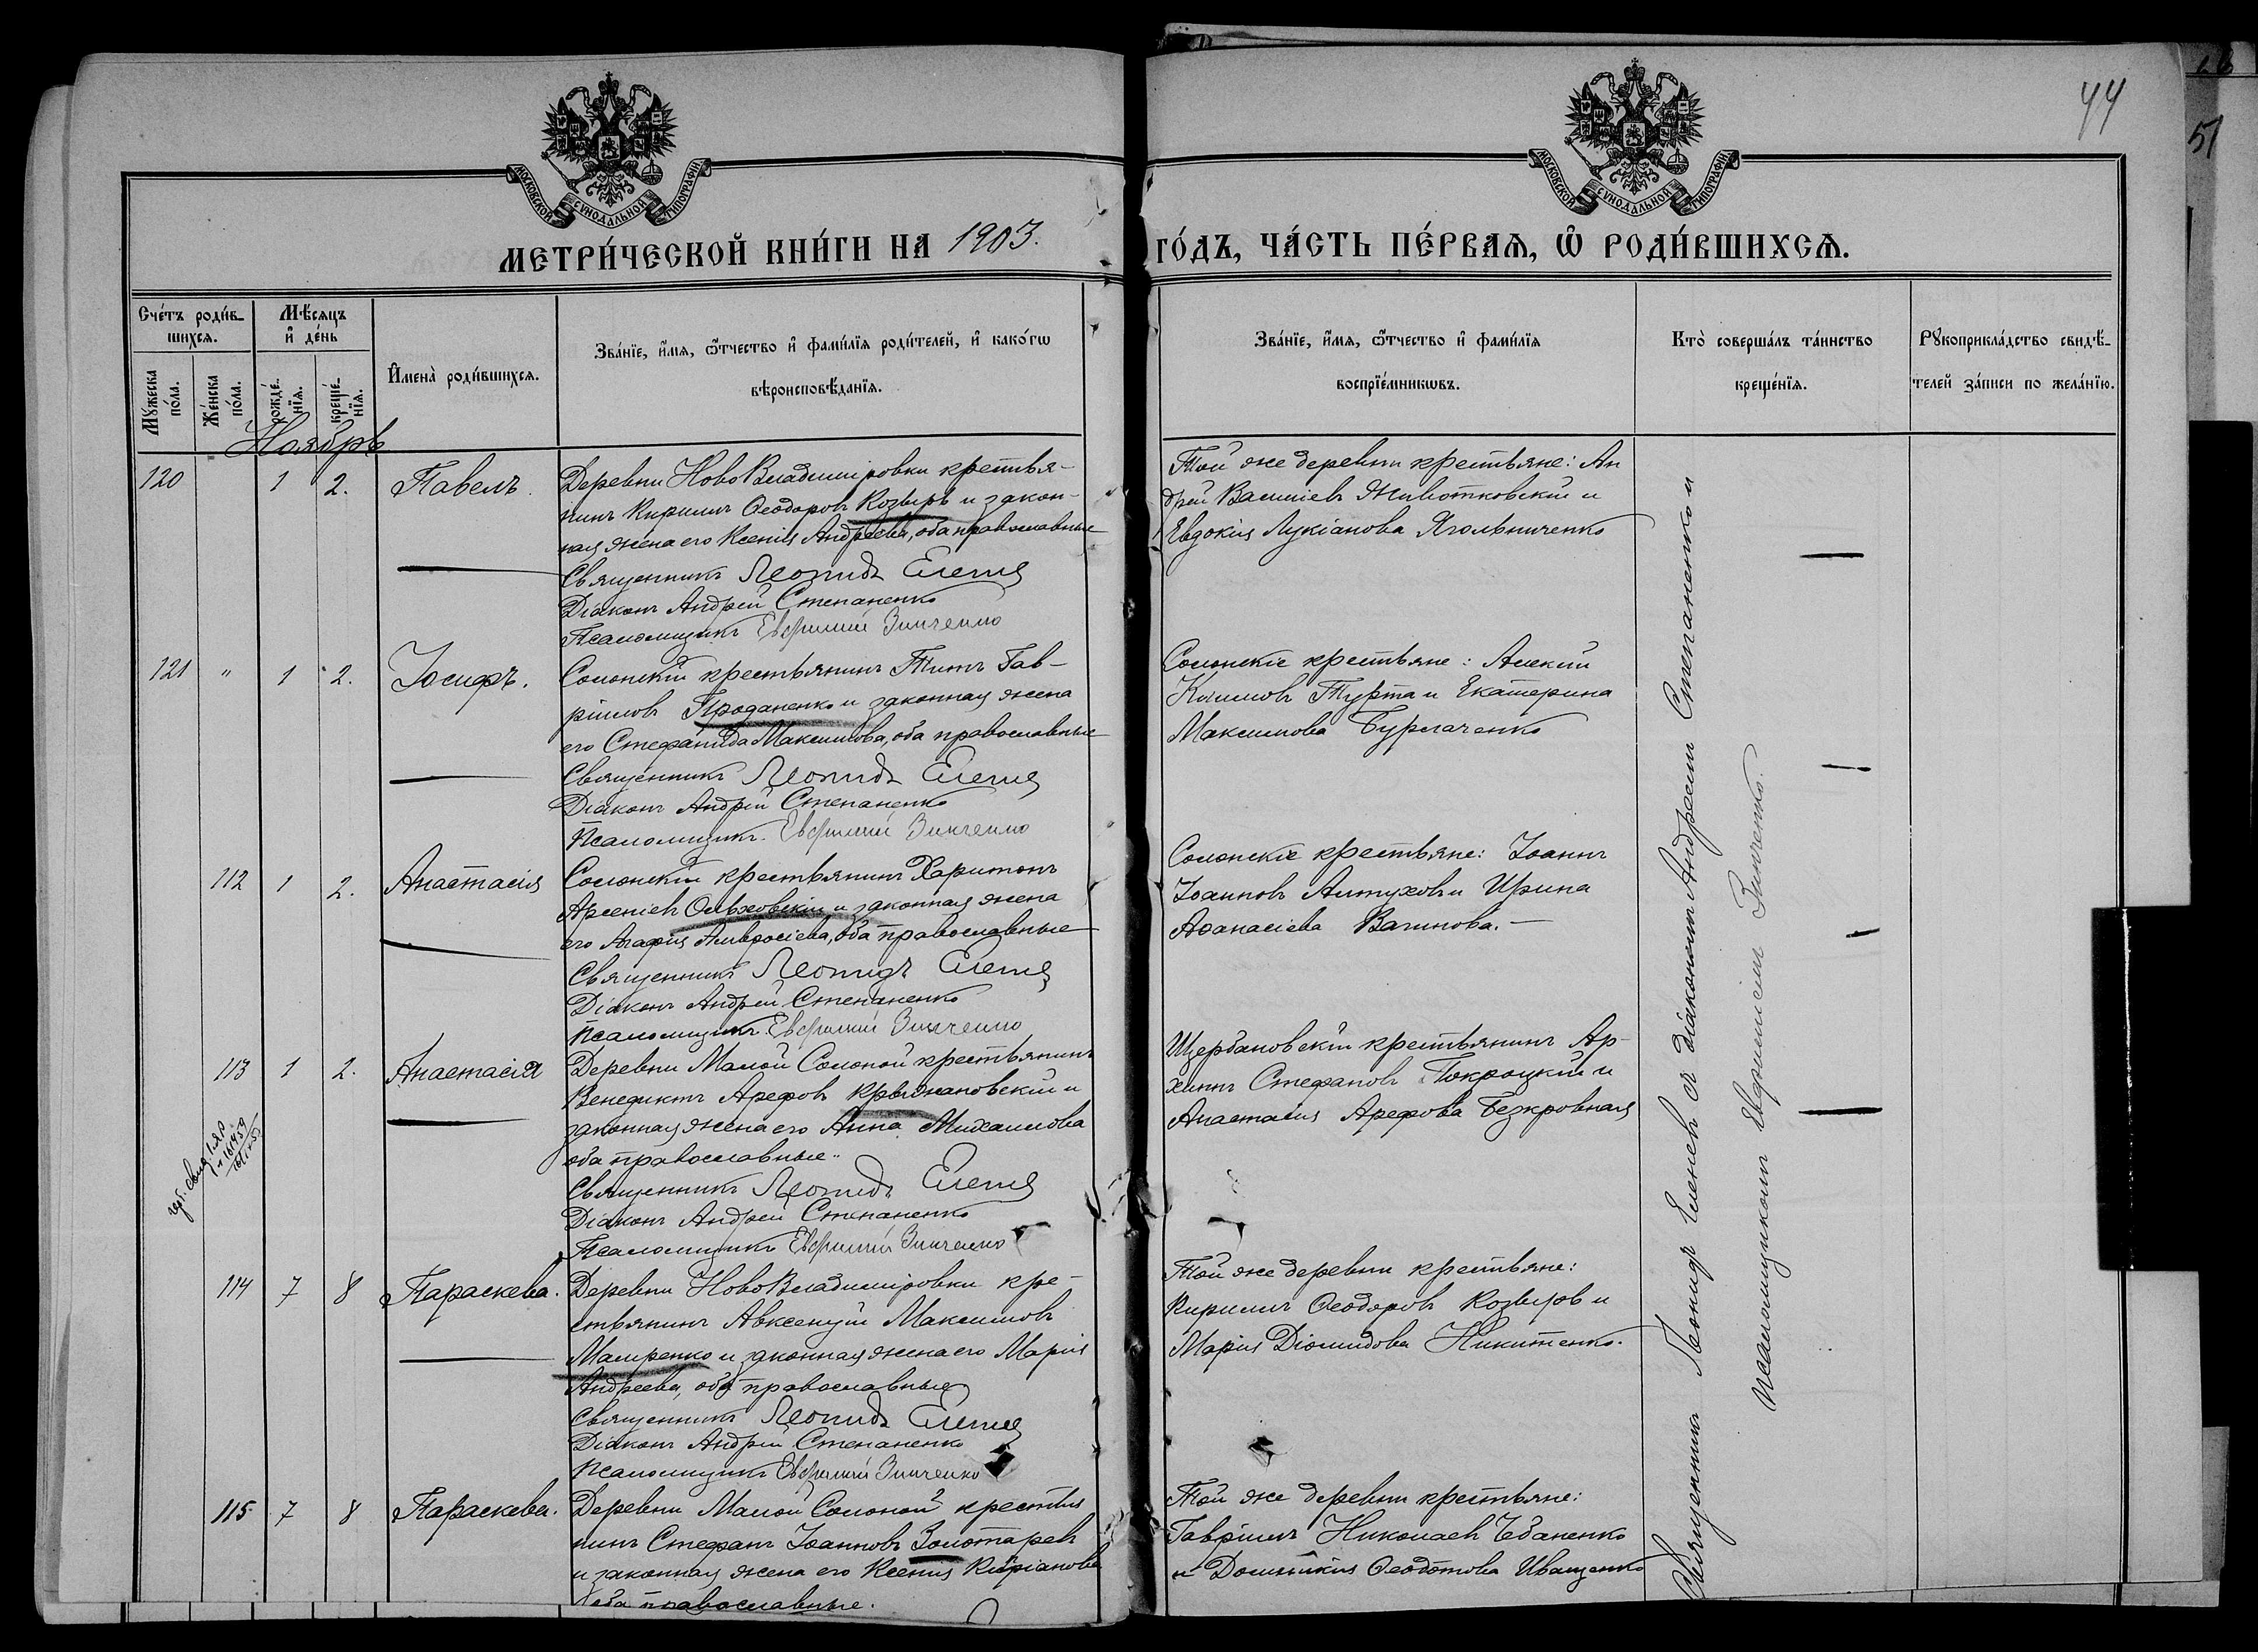 44
51
МОСКОВСКОЙ СѴНОДАЛЬНОЙ ТИПОГРАФІИ
МОСКОВСКОЙ СѴНОДАЛЬНОЙ ТИПОГРАФІИ
МЕТРИ́ЧЕСКОЙ КНИ́ГИ НА 1903. ГО́ДЪ, ЧА́СТЬ ПЕ́РВАѦ, Ѽ РОДИ́ВШИХСѦ.
Счéтъ роди́в-
шихсѧ.
Мꙋ́жеска по́ла.
Же́нска по́ла.
Мѣ́сѧцъ и҆ де́нь
рожде́-нїѧ.
креще́-нїѧ.
И҆мена̀ роди́вшихсѧ.
Зва́нїе, и҆́мѧ, ѻ҆́тчество и҆ фами́лїѧ роди́телей, и҆ како́гѡ
вѣроисповѣ́данїѧ.
Зва́нїе, и҆́мѧ, ѻ҆́тчество и҆ фами́лїѧ
воспрїе́мникѡвъ.
Кто̀ соверша́лъ та́инство
креще́нїѧ.
Рꙋкоприкла́дство свидѣ́-
телей за́писи по жела́нїю.
Ноябрь
120 1 2. Павелъ.
Деревни НовоВладиміровки крестья-
нинъ Кириллъ Ѳеодоровъ Козырь и закон-
ная жена его Ксенія Андреева, оба православные
Священникъ Леонидъ
Діаконъ Андрей Степаненко
Псаломщикъ Евфимій Зинченко
Той же деревни крестьяне: Ан
дрей Василіевъ Животковскій и
Евдокія Лукіанова Ягольниченко
121 " 1 2. Іосифъ.
Солонскій крестьянинъ Титъ Гав-
ріиловъ Проданенко и законная жена
его Стефанида Максимова, оба православные
Священникъ Леонидъ
Діаконъ Андрей Степаненко
Псаломщикъ Евфимій Зинченко
Солонскіе крестьяне: Алексій
Турта и Екатерина
Максимова Бурлаченко
112 1 2. Анастасія
Солонскій крестьянинъ Харитонъ
Арсеніевъ Ольховскій и законная жена
его Агафія Амвросіева, оба православные
Священникъ Леонидъ
Діаконъ Андрей Степаненко
Псаломщикъ Евфимій Зинченко
Солонскіе крестьяне: Іоаннъ
Іоанновъ Алтуховъ и Ирина
Аѳанасіева Вагинова.
113 1 2. Анастасія
Деревни Малой Солоной крестьянинъ
Венедиктъ Арефовъ Крыжановскій и
законная жена его Анна Михаилова
оба православные
Священникъ Леонидъ
Діаконъ Андрей Степаненко
Псаломщикъ Евфимій Зинченко
Щербановскій крестьянинъ Ар-
хиппъ Стефановъ и
Анастасія Арефова Безкровная
114 7 8 Параскева.
Деревни НовоВладиміровки кре-
стьянинъ Авксентій Максимовъ
и законная жена его Марія
Андреева, оба православные
Священникъ Леонидъ
Діаконъ Андрей Степаненко
Псаломщикъ Евфимій Зинченко
Той же деревни крестьяне:
Кириллъ Ѳеодоровъ Козыровъ и
Марія Діомидова Никитенко.
115 7 8 Параскева.
Деревни Малой Солоной крестья
нинъ Стефанъ Іоанновъ Золотаревъ
и законная жена его Ксенія Кипріанова
оба православные.
Той же деревни крестьяне:
Гавріилъ Николаевъ Чебаненко
и Домникія Ѳеодотова Иващенко
Священникъ Леонидъ Еленевъ съ діакономъ Андреемъ Степаненко и
псаломщикомъ Евфиміемъ Зинченко.